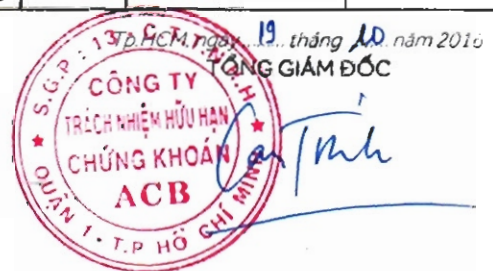 Tp.HCM, ngày 19 tháng 10 năm 2016
TỔNG GIÁM ĐỐC
S.G.P: 13 C.T.T.N.H.H
CÔNG TY
TRÁCH NHIỆM HỮU HẠN
CHỨNG KHOÁN
ACB
QUẬN 1 - T.P HỒ CHÍ MINH